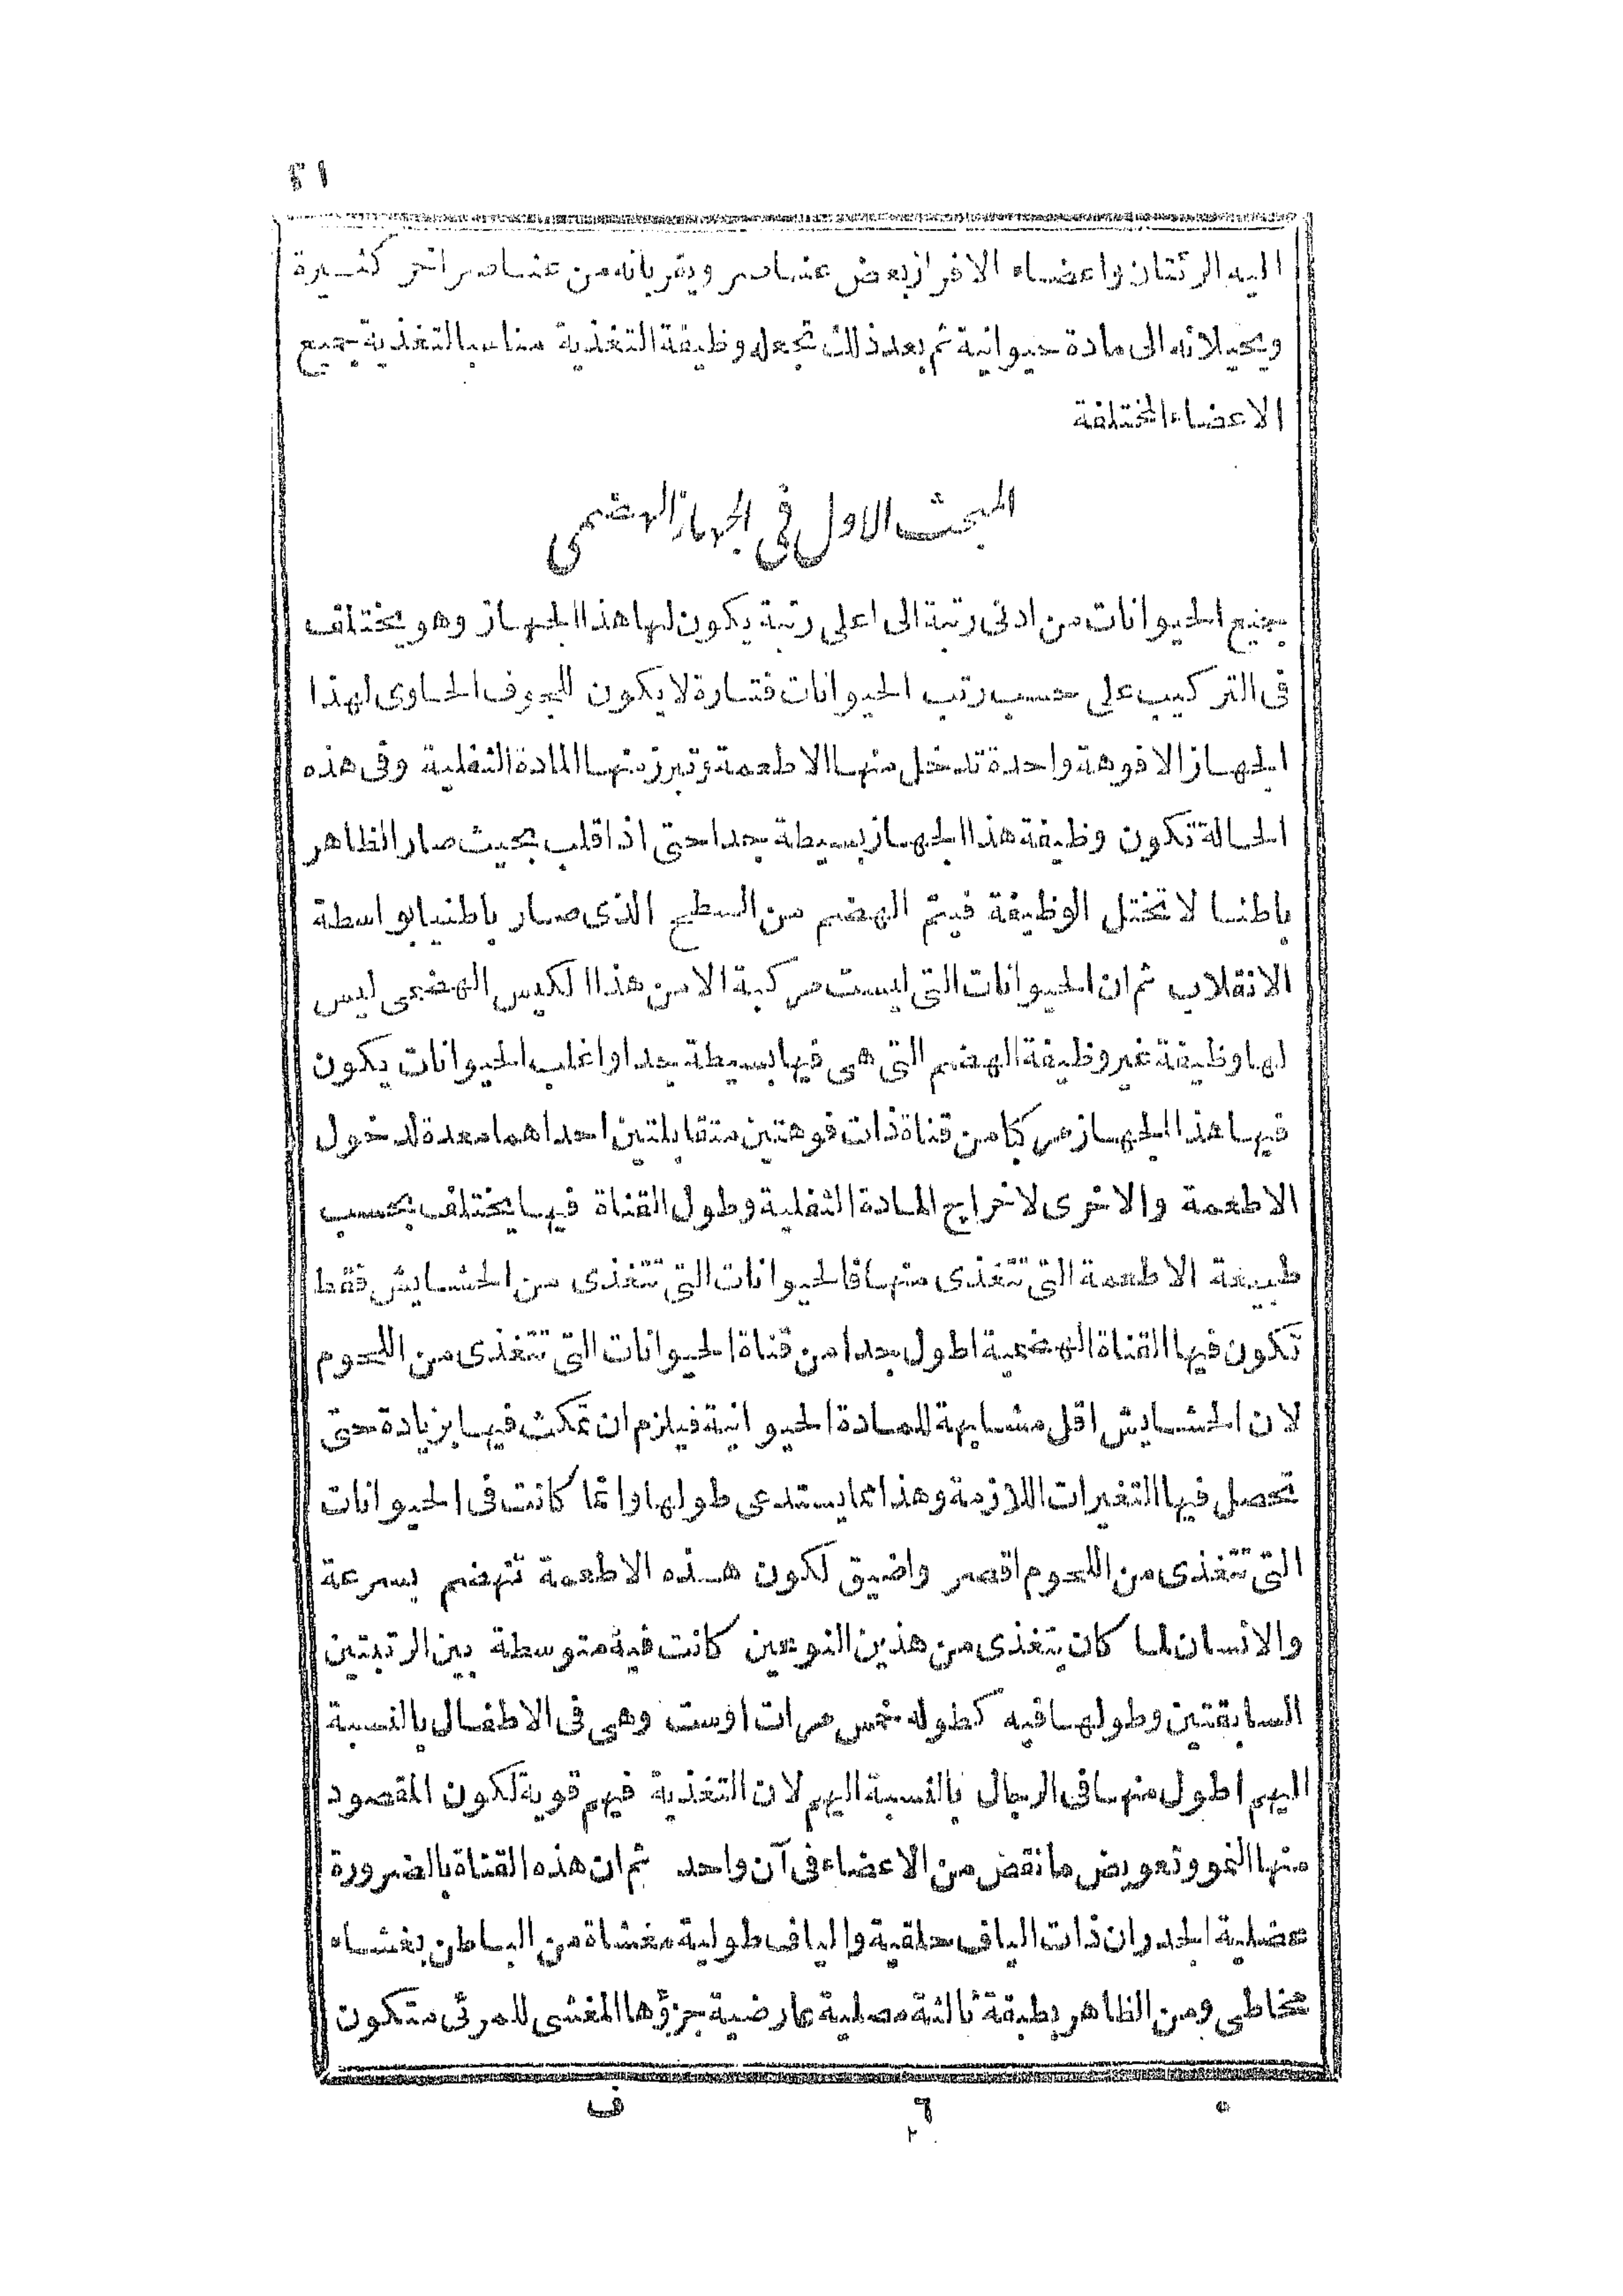 ٤١
اليه الرئتان واعضاء الافراز بعض عناصر ويقربانه من عناصر اخر كثيرة
ويحيلانه الى مادة حيوانية ثم بعد ذلك تجعله وظيفة التغذية مناسبا لتغذية جميع
الاعضاء المختلفة
المبحث الاول فى الجهاز الهضمى
جميع الحيوانات من ادنى رتبة الى اعلى رتبة يكون لها هذا الجهاز وهو يختلف
فى التركيب على حسب رتب الحيوانات فتارة لا يكون للجوف الحاوى لهذا
الجهاز الا فوهة واحدة تدخل منها الاطعمة وتبرز منها المادة الثفلية وفى هذه
الحالة تكون وظيفة هذا الجهاز بسيطة جدا حتى اذا قلب بحيث صار الظاهر
باطنا لا تختل الوظيفة فيتم الهضم من السطح الذى صار باطنيا بواسطة
الانقلاب ثم ان الحيوانات التى ليست مركبة الا من هذا الكيس الهضمى ليس
لها وظيفة غير وظيفة الهضم التى هى فيها بسيطة جدا واغلب الحيوانات يكون
فيها هذا الجهاز مركبا من قناة ذات فوهتين متقابلتين احداهما معدة لدخول
الاطعمة والاخرى لاخراج المادة الثفلية وطول القناة فيها يختلف بحسب
طبيعة الاطعمة التى تتغذى منها فالحيوانات التى تتغذى من الحشايش فقط
تكون فيها القناة الهضمية اطول جدا من قناة الحيوانات التى تتغذى من اللحوم
لان الحشايش اقل مشابهة للمادة الحيوانية فيلزم ان تمكث فيها بزيادة حتى
تحصل فيها التغيرات اللازمة وهذا مما يستدعى طولها وانما كانت فى الحيوانات
التى تتغذى من اللحوم اقصر واضيق لكون هذه الاطعمة تنهضم بسرعة
والانسان لما كان يتغذى من هذين النوعين كانت فيه متوسطة بين الرتبتين
السابقتين وطولها فيه كطوله خمس مرات او ست وهى فى الاطفال بالنسبة
اليهم اطول منها فى الرجال بالنسبة اليهم لان التغذية فيهم قوية لكون المقصود
منها النمو وتعويض ما نقض من الاعضاء فى آن واحد ثم ان هذه القناة بالضرورة
عضلية الجدران ذات الياف حلقية والياف طولية مغشاة من الباطن بغشاء
مخاطى ومن الظاهر بطبقة ثالثة مصلية عارضية جزؤها المغشى للمرئ متكون
٦ ف